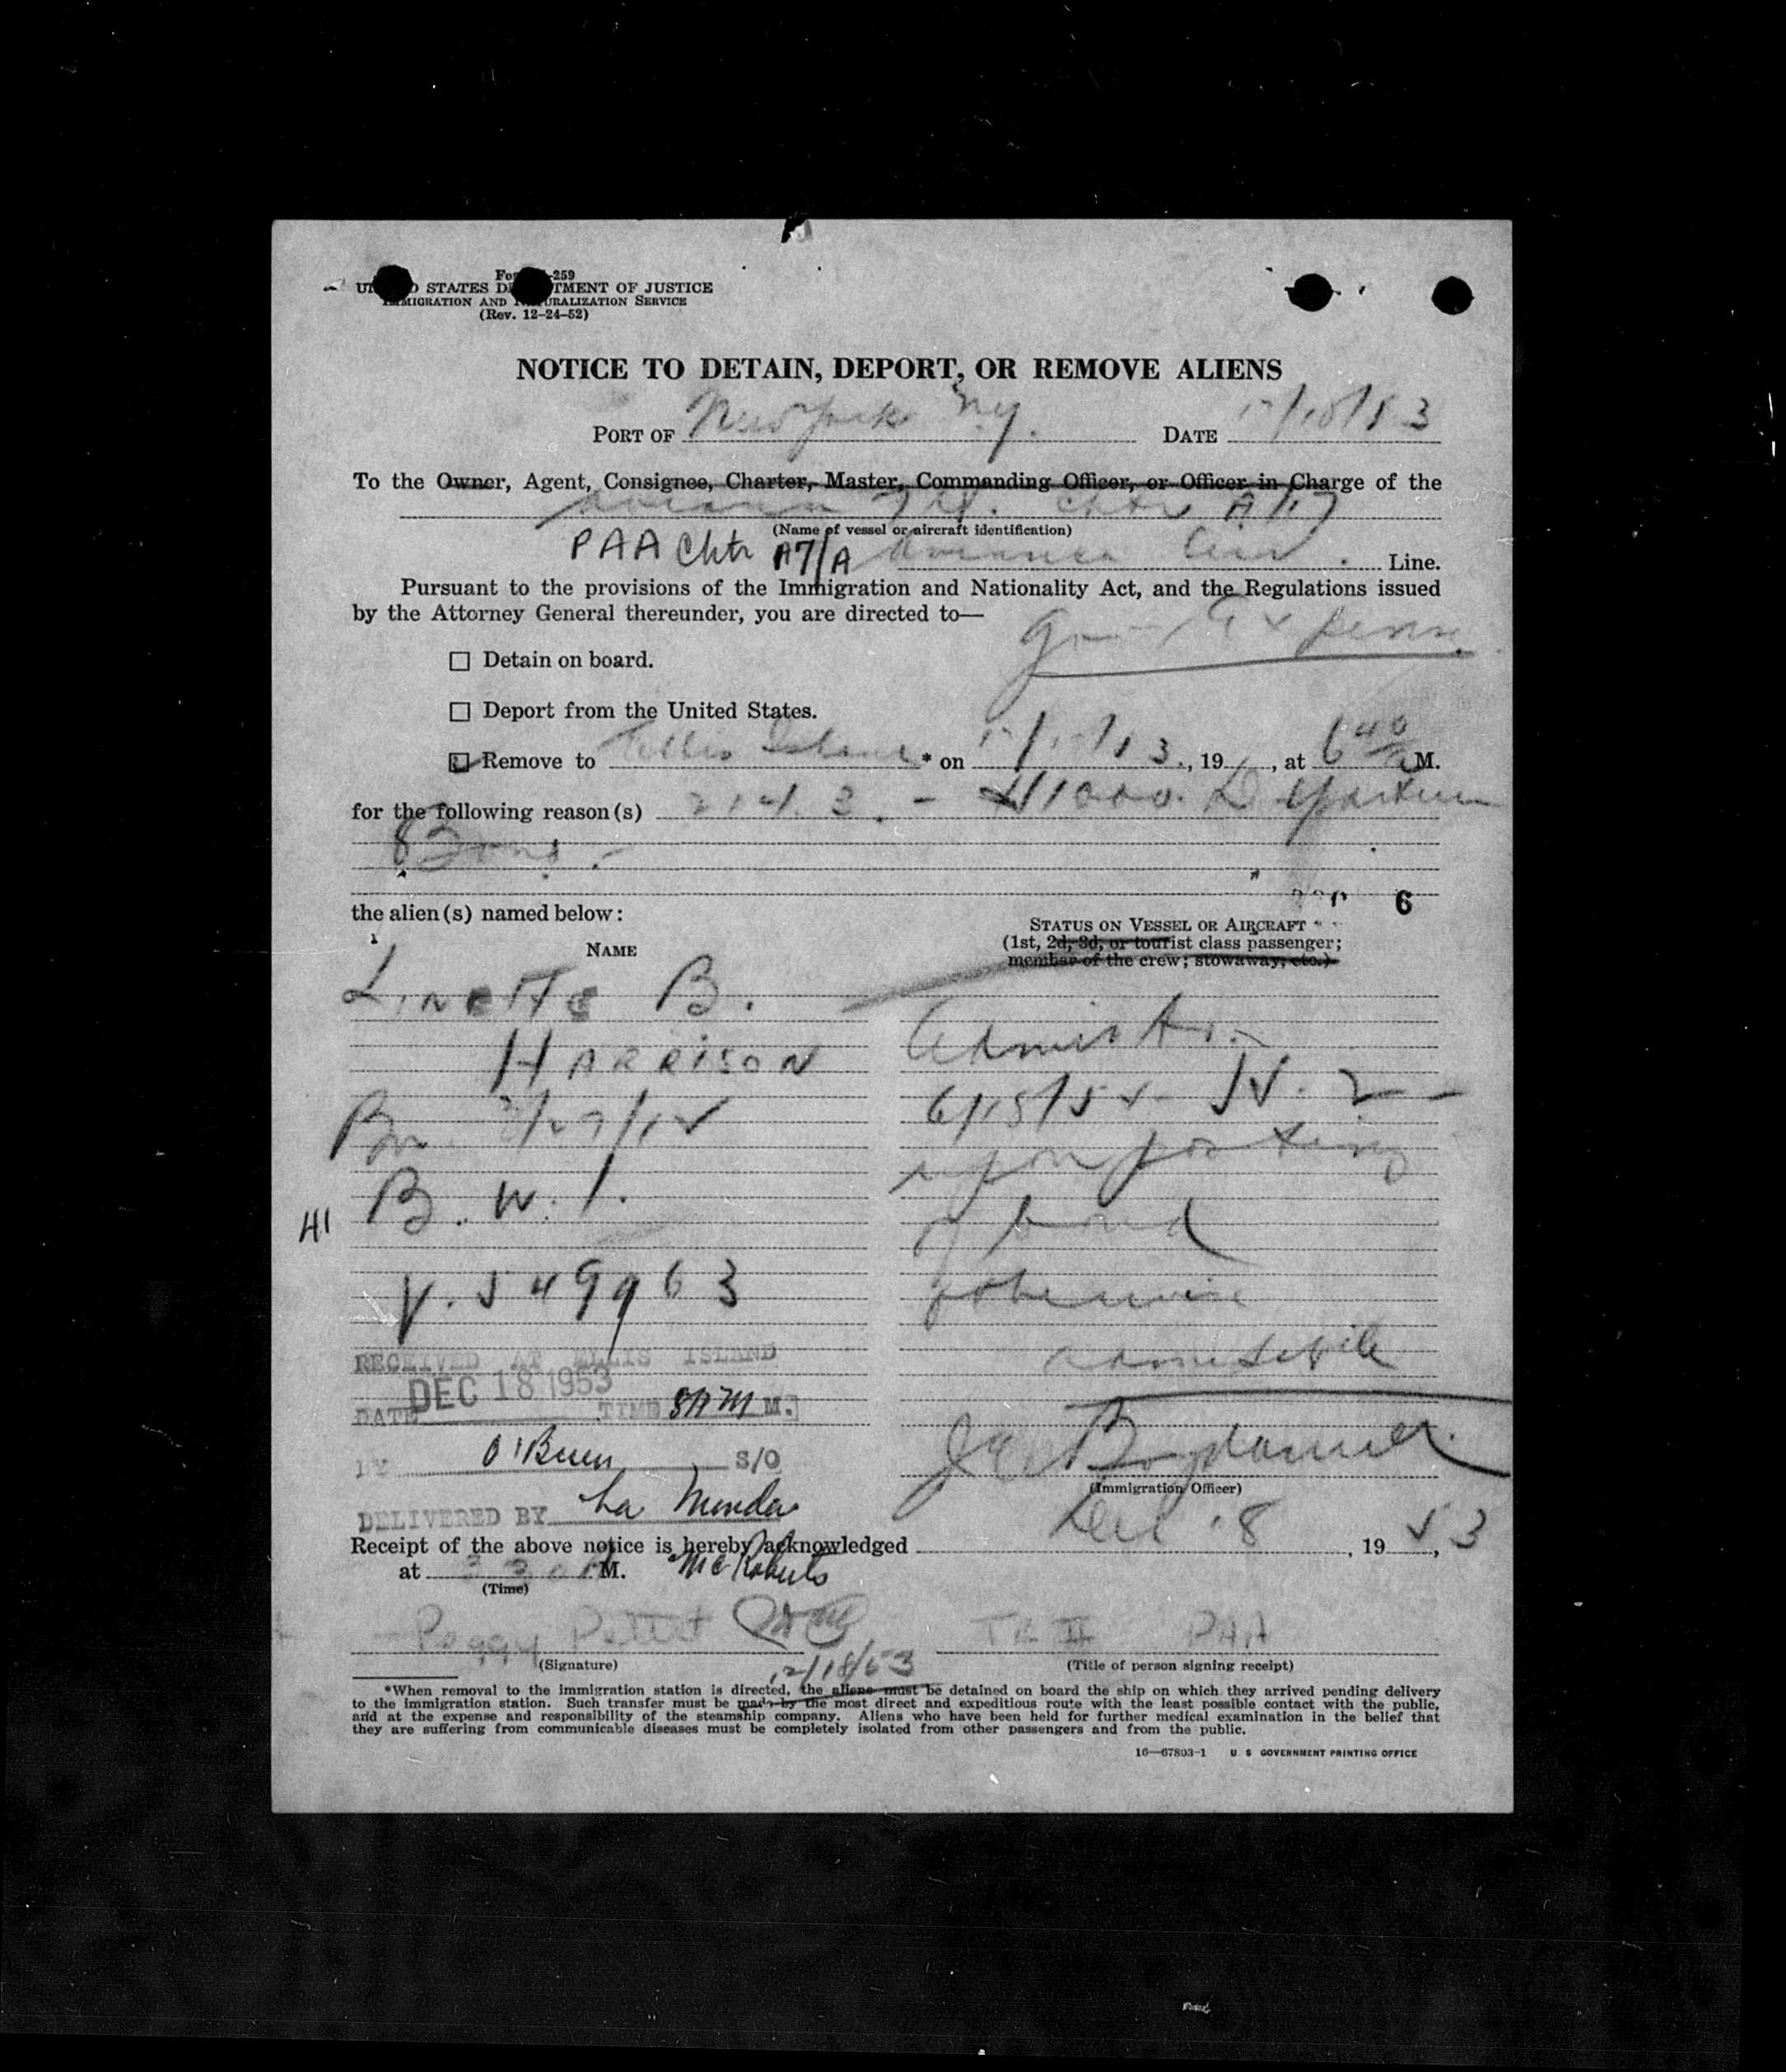 Form -259
UNITED STATES DEPARTMENT OF JUSTICE
IMMIGRATION AND NATURALIZATION SERVICE
(Rev. 12-24-52)
NOTICE TO DETAIN, DEPORT, OR REMOVE ALIENS
PORT OF New York N.Y. DATE 12/18/53
To the Owner, Agent, Consignee, Charter, Master, Commanding Officer, or Officer in Charge of the
Chtr A/17
(Name of vessel or aircraft identification)
PAA Chtr A7/A Line.
Pursuant to the provisions of the Immigration and Nationality Act, and the Regulations issued
by the Attorney General thereunder, you are directed to—
Expense
☐ Detain on board.
☐ Deport from the United States.
☑ Remove to Ellis Island * on , 19 , at 6 40 M.
for the following reason(s) 214.3. - $1000. Departure
Bond.
6
the alien(s) named below:
STATUS ON VESSEL OR AIRCRAFT
(1st, 2d, 3d, or tourist class passenger;
member of the crew; stowaway, etc.)
NAME
Linette B.
HARRISON
B.W.I.
41
V. 549963
Admit to
6/15/54
upon posting
of bond
otherwise
admissible
RECEIVED AT ELLIS ISLAND
DEC 18 1953
DATE TIME 8AM M.
BY O'Brien S/O
(Immigration Officer)
DELIVERED BY
Receipt of the above notice is hereby acknowledged Dec 18, 19 53,
at M. McRoberts
(Time)
Peggy Pettit PAA
(Signature) (Title of person signing receipt)
12/18/53
*When removal to the immigration station is directed, the aliens must be detained on board the ship on which they arrived pending delivery
to the immigration station. Such transfer must be made by the most direct and expeditious route with the least possible contact with the public,
and at the expense and responsibility of the steamship company. Aliens who have been held for further medical examination in the belief that
they are suffering from communicable diseases must be completely isolated from other passengers and from the public.
16—67803-1 U. S GOVERNMENT PRINTING OFFICE